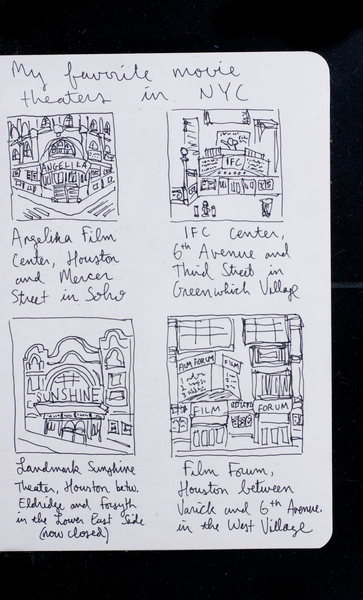 My favorite movie
theaters in NYC
ANGELIKA
Angelika Film
Center, Houston
and Mercer
Street in Soho
IFC
IFC Center,
6th Avenue and
Third Street in
Greenwhich Village
SUNSHINE
Landmark Sunshine
Theater, Houston betw.
Eldridge and Forsyth
in the Lower East Side
(now closed)
FILM FORUM
FILM
FILM
FORUM
Film Forum,
Houston between
Varick and 6th Avenue.
in the West Village